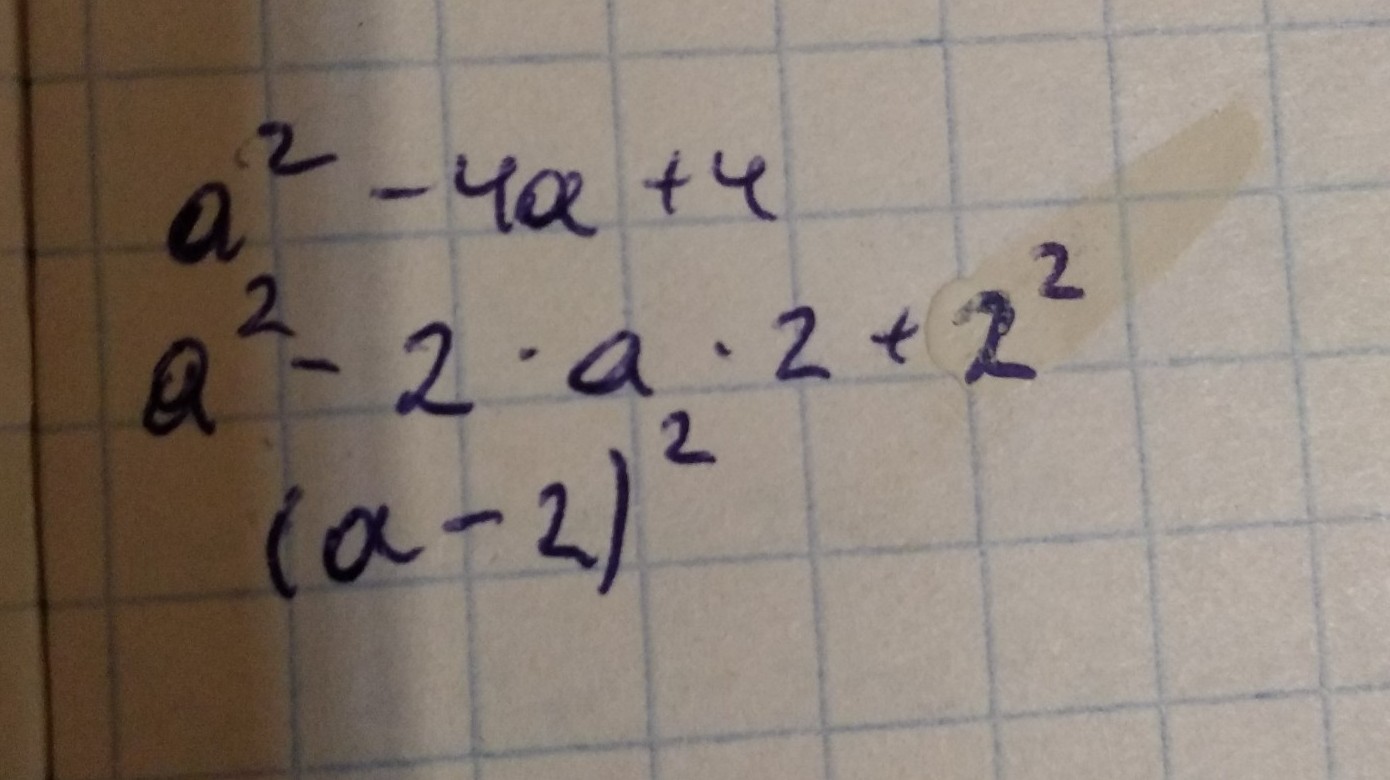 a² - 4a + 4
a² - 2 · a · 2 + 2²
(a - 2)²